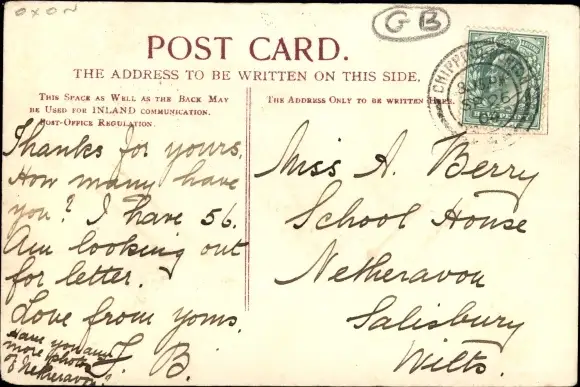 OXON
GB
POST CARD.
THE ADDRESS TO BE WRITTEN ON THIS SIDE.
THIS SPACE AS WELL AS THE BACK MAY
BE USED FOR INLAND COMMUNICATION.
POST-OFFICE REGULATION.
THE ADDRESS ONLY TO BE WRITTEN HERE.
Thanks for yours.
How many have
you? I have 56.
Am looking out
for letter.
Love from yours,
F. B.
Have you any
more photos
of Netheravon?
Miss A. Berry
School House
Netheravon
Salisbury
Wilts.